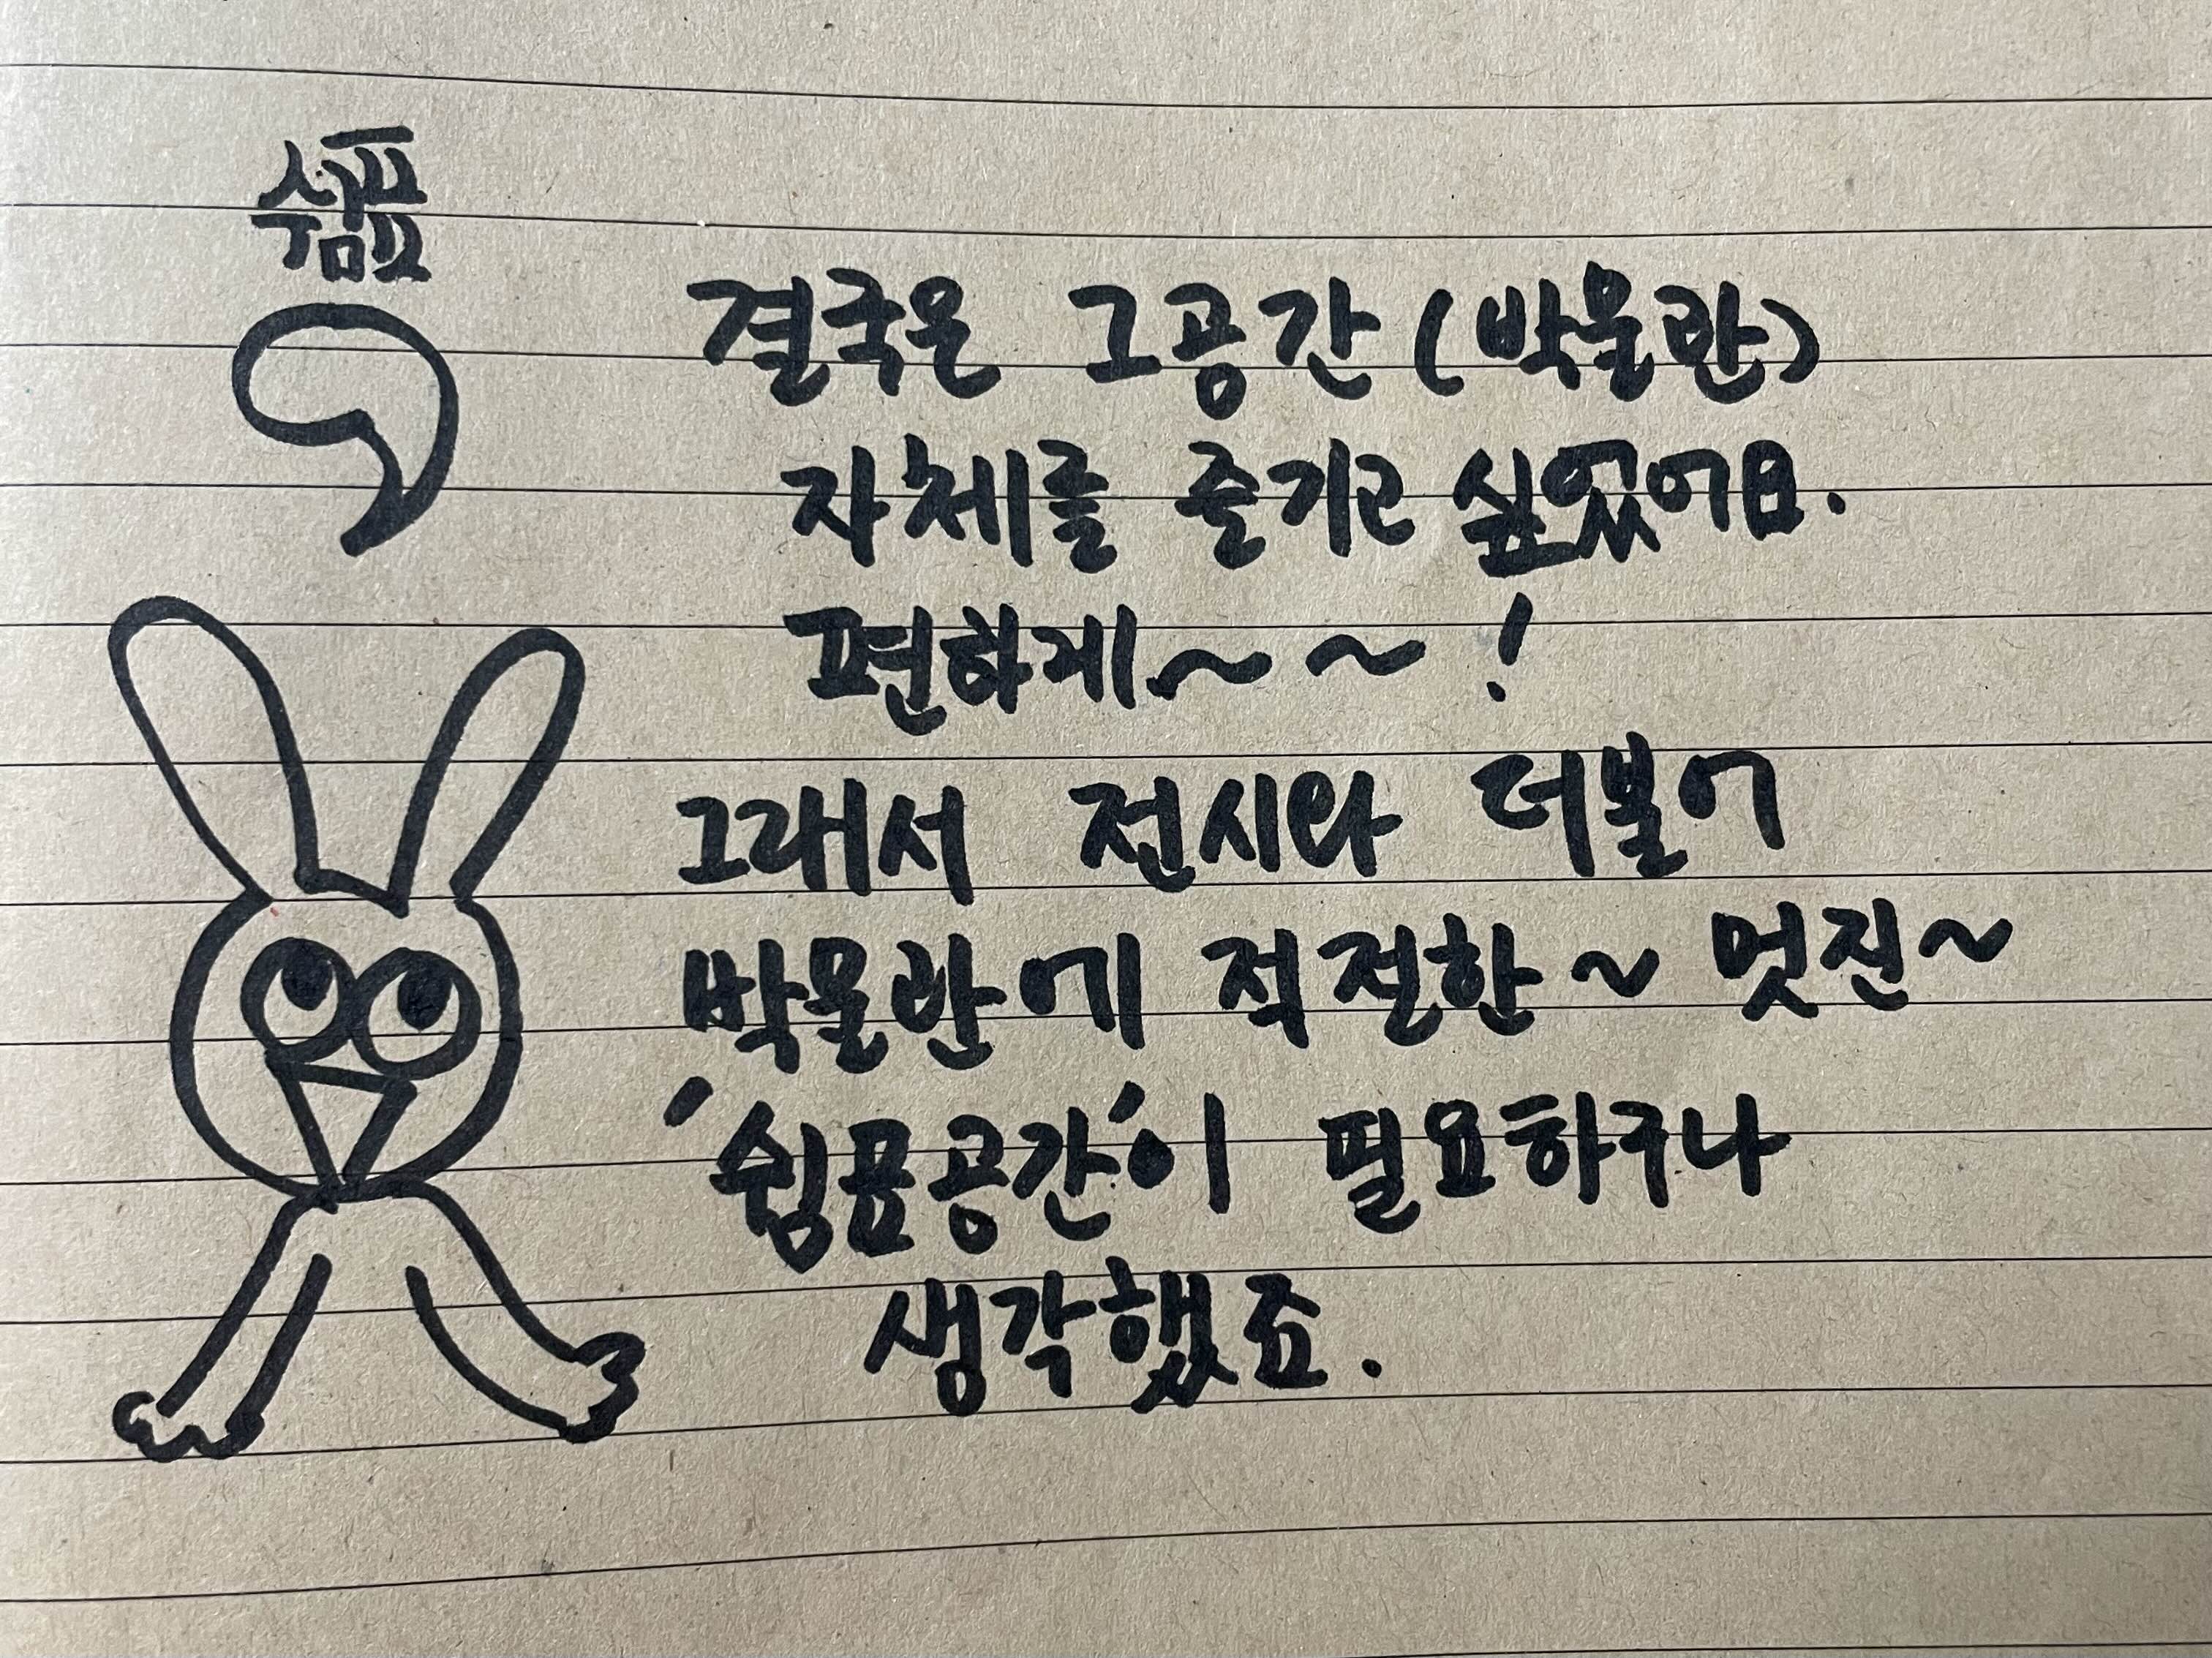 쉼표
결국은 그공간(박물관)
자체를 즐기고 싶었어요.
편하게~ ~ !
그래서 전시와 더불어
박물관에 적절한~ 멋진~
'쉼표공간'이 필요하구나
생각했죠.